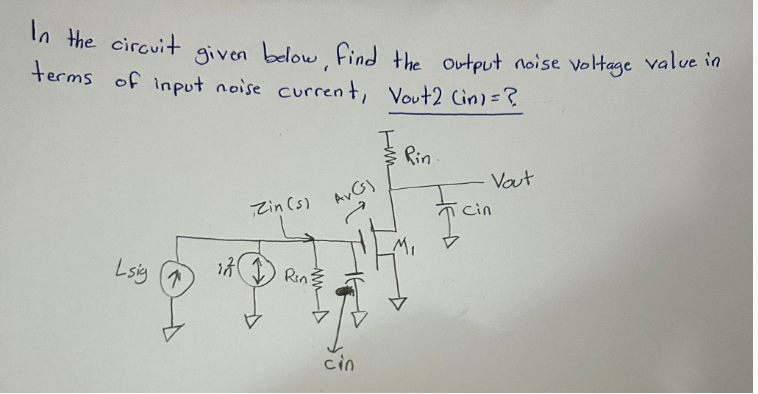 In the circuit given below, find the output noise voltage value in
terms of input noise current, Vout2 (in) = ?
Rin
Vout
Av(s)
Zin(s)
Cin
M1
Isig
Rin
cin